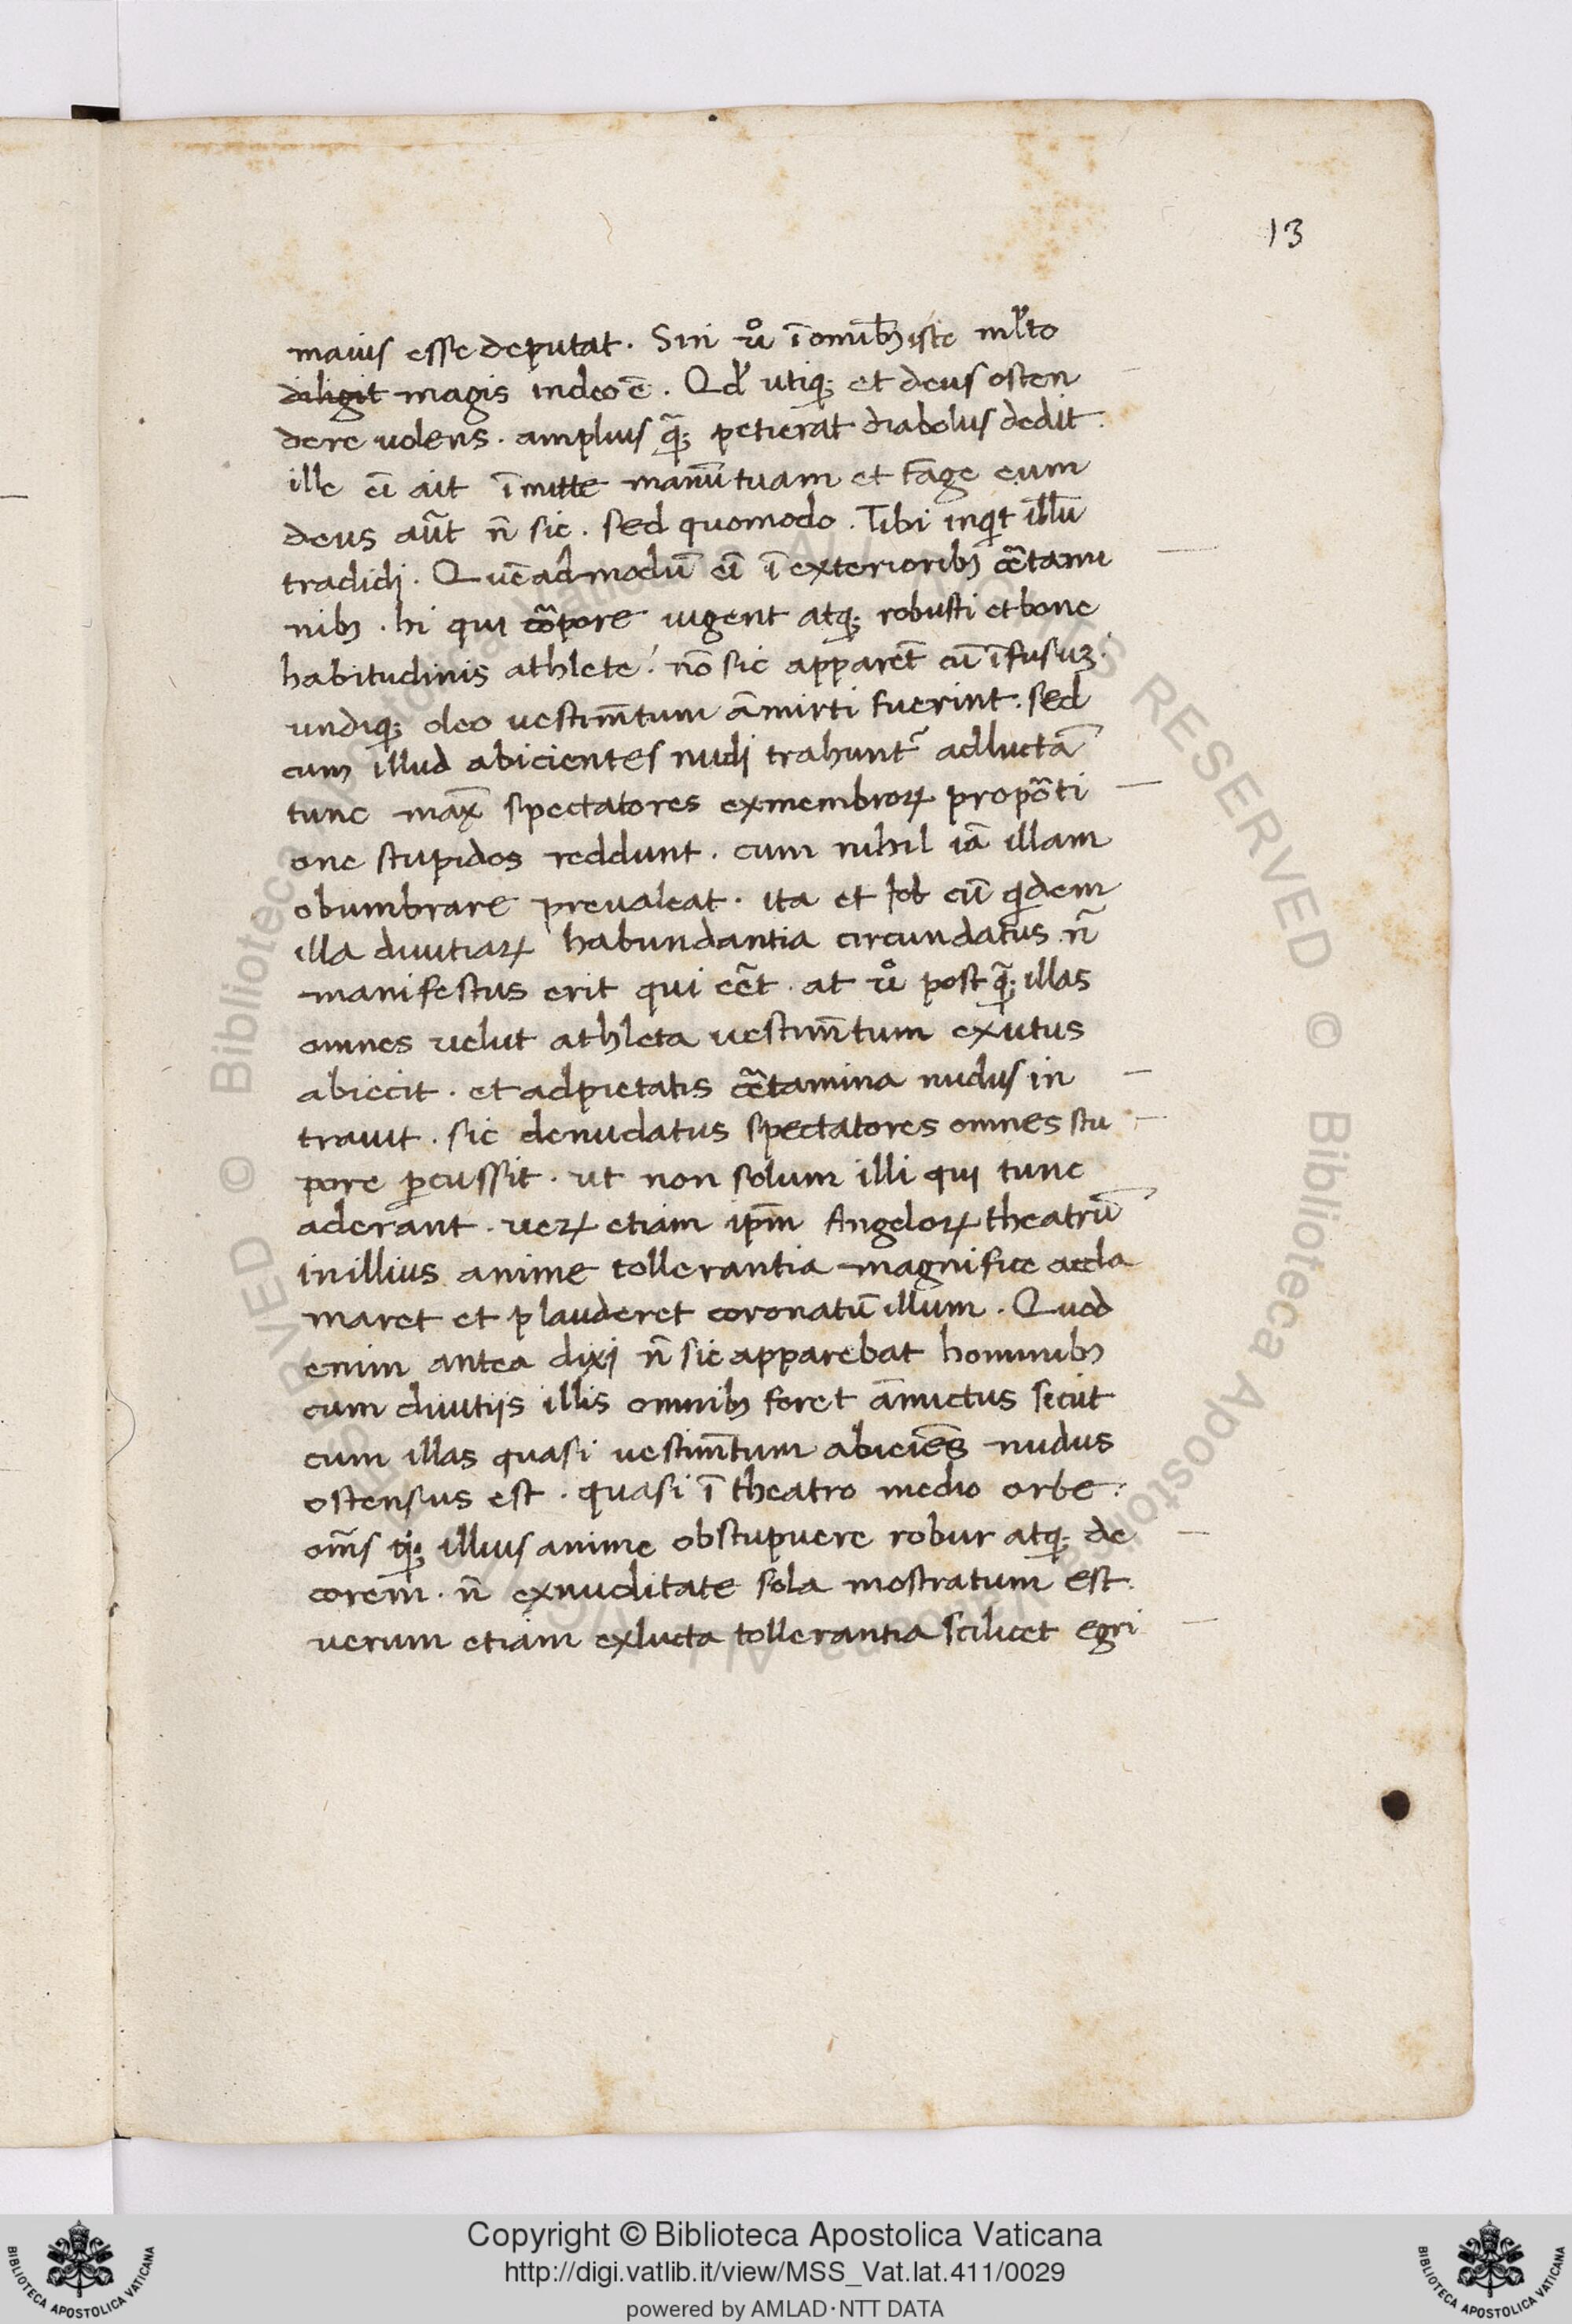 13
maius esse deputat. Sin ũo ĩ omnibꝫ iste ml̃to
diligit magis in deo ẽ. Qd̃ utiqꝫ et deus osten
dere uolens. amplius q̃ꝫ petierat diabolus dedit.
ille eĩ ait ĩmitte manũ tuam et tãge eum
deus aũt ñ sic. sed quomodo. Tibi inqͥt illũ
tradidi. Quẽadmodũ eĩ ĩ exterioribꝫ c̃tami
nibꝫ. hi qui cõpore uigent atqꝫ robusti et bone
habitudinis athlete. nõ sic apparẽt cũ ĩfusuꝫ
undiqꝫ oleo uestim̃tum ãmirti fuerint. sed
cum illud abicientes nudi trahuntᷣ ad luctã
tunc max̃ spectatores ex membroꝝ propõti
one stupidos reddunt. cum nihil iã illam
obumbrare preualeat. ita et Iob cũ qͥdem
illa diuitiaꝝ habundantia circundatus ñ
manifestus erit qui eẽt. at ũo post q̃ꝫ illas
omnes uelut athleta uestim̃tum exutus
abiecit. et ad pietatis c̃tamina nudus in
trauit. sic denudatus spectatores omnes stu
pore ꝑcussit. ut non solum illi qui tunc
aderant. ueꝝ etiam ip̃m Angeloꝝ theatrũ
in illius anime tollerantia magnifice accla
maret et plauderet coronatũ illum. Quod
enim antea dixi ñ sic apparebat hominibꝫ
cum diuitijs illis omnibꝫ foret ãmictus sicut
cum illas quasi uestim̃tum abiciẽs nudus
ostensus est. quasi ĩ theatro medio orbe.
om̃s illius anime obstupuere robur atqꝫ de
corem. ñ ex nuditate sola mostratum est.
uerum etiam ex lucta tollerantia scilicet egri
Copyright © Biblioteca Apostolica Vaticana
http://digi.vatlib.it/view/MSS_Vat.lat.411/0029
powered by AMLAD·NTT DATA